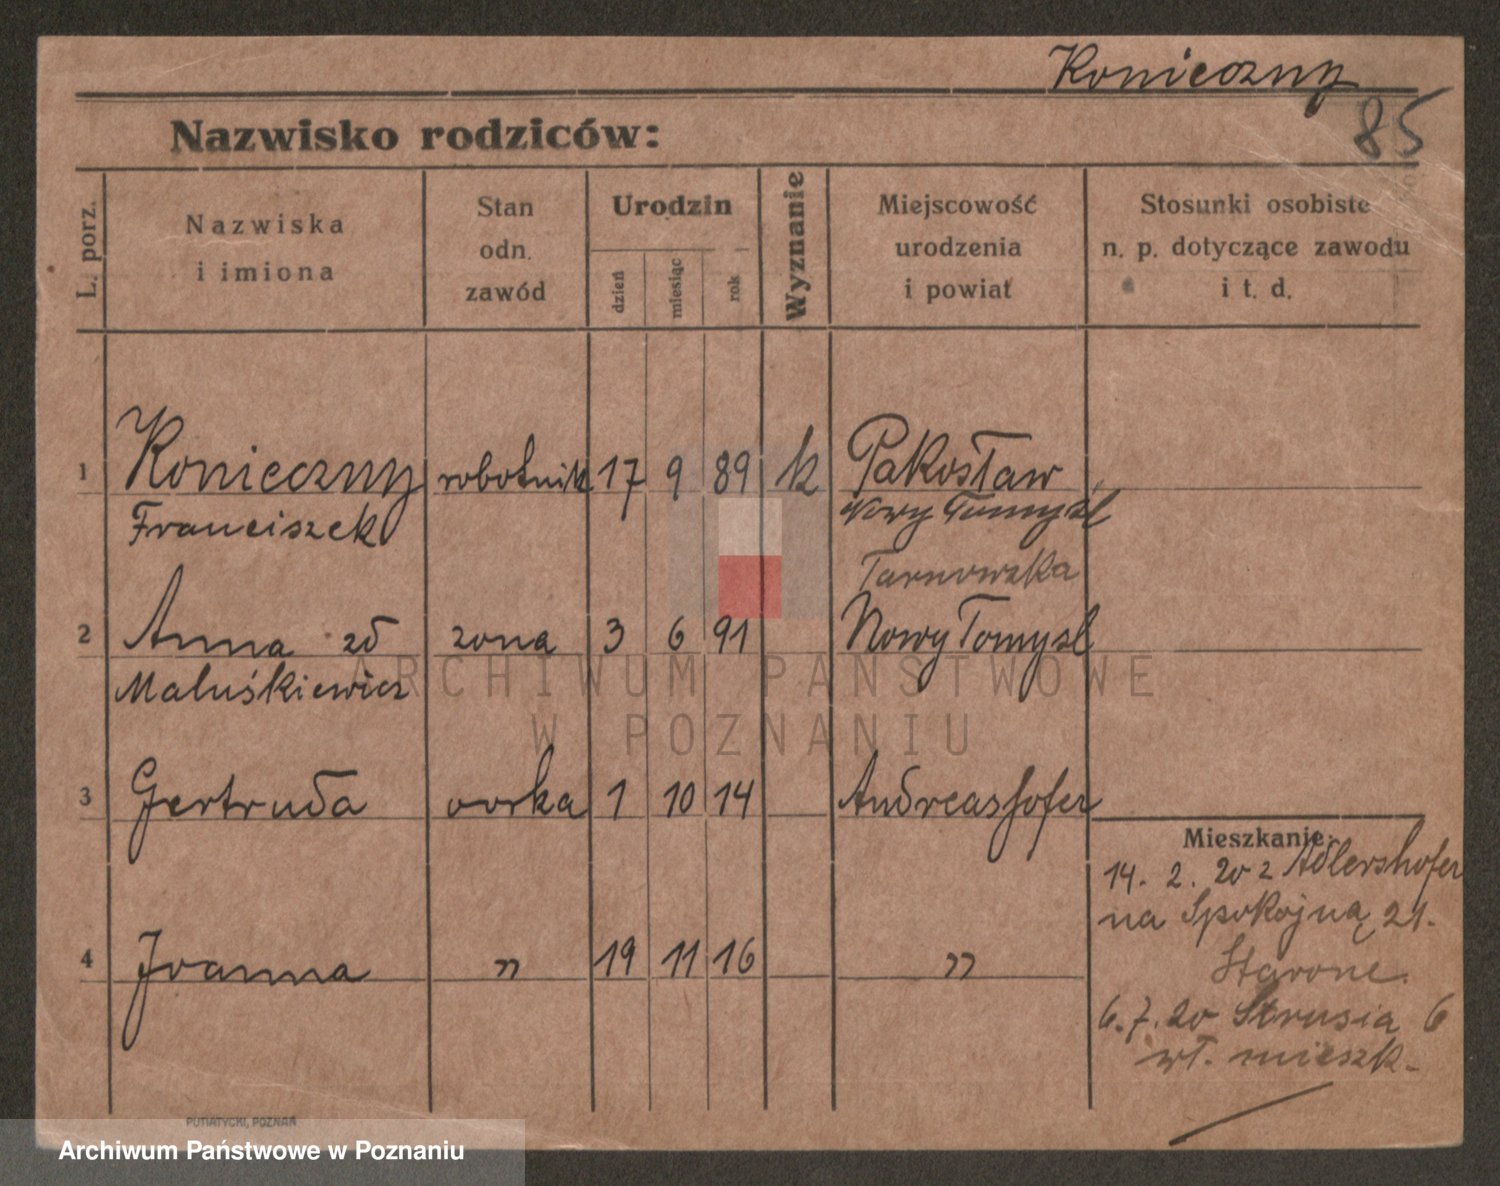 Konieczny
85
Nazwisko rodziców:
L. porz.
Nazwiska
i imiona
Stan
odn.
zawód
Urodzin
dzień
miesiąc
rok
Wyznanie
Miejscowość
urodzenia
i powiat
Stosunki osobiste
n. p. dotyczące zawodu
i t. d.
1 Konieczny robotnik 17 9 89 k Pakosław
Franciszek Nowy Tomysl
Tarnowska
2 Anna zd zona 3 6 91 Nowy Tomysl
Maluśkiewicz
3 Gertruda corka 1 10 14 Andreashofer
Mieszkanie:
14. 2. 20 z Adlershofer
na Spokojną 21.
4 Joanna " 19 11 16 "
6. 7. 20 Strusia 6
wł. mieszk.
PUTIATYCKI, POZNAŃ
ARCHIWUM PAŃSTWOWE
W POZNANIU
Archiwum Państwowe w Poznaniu